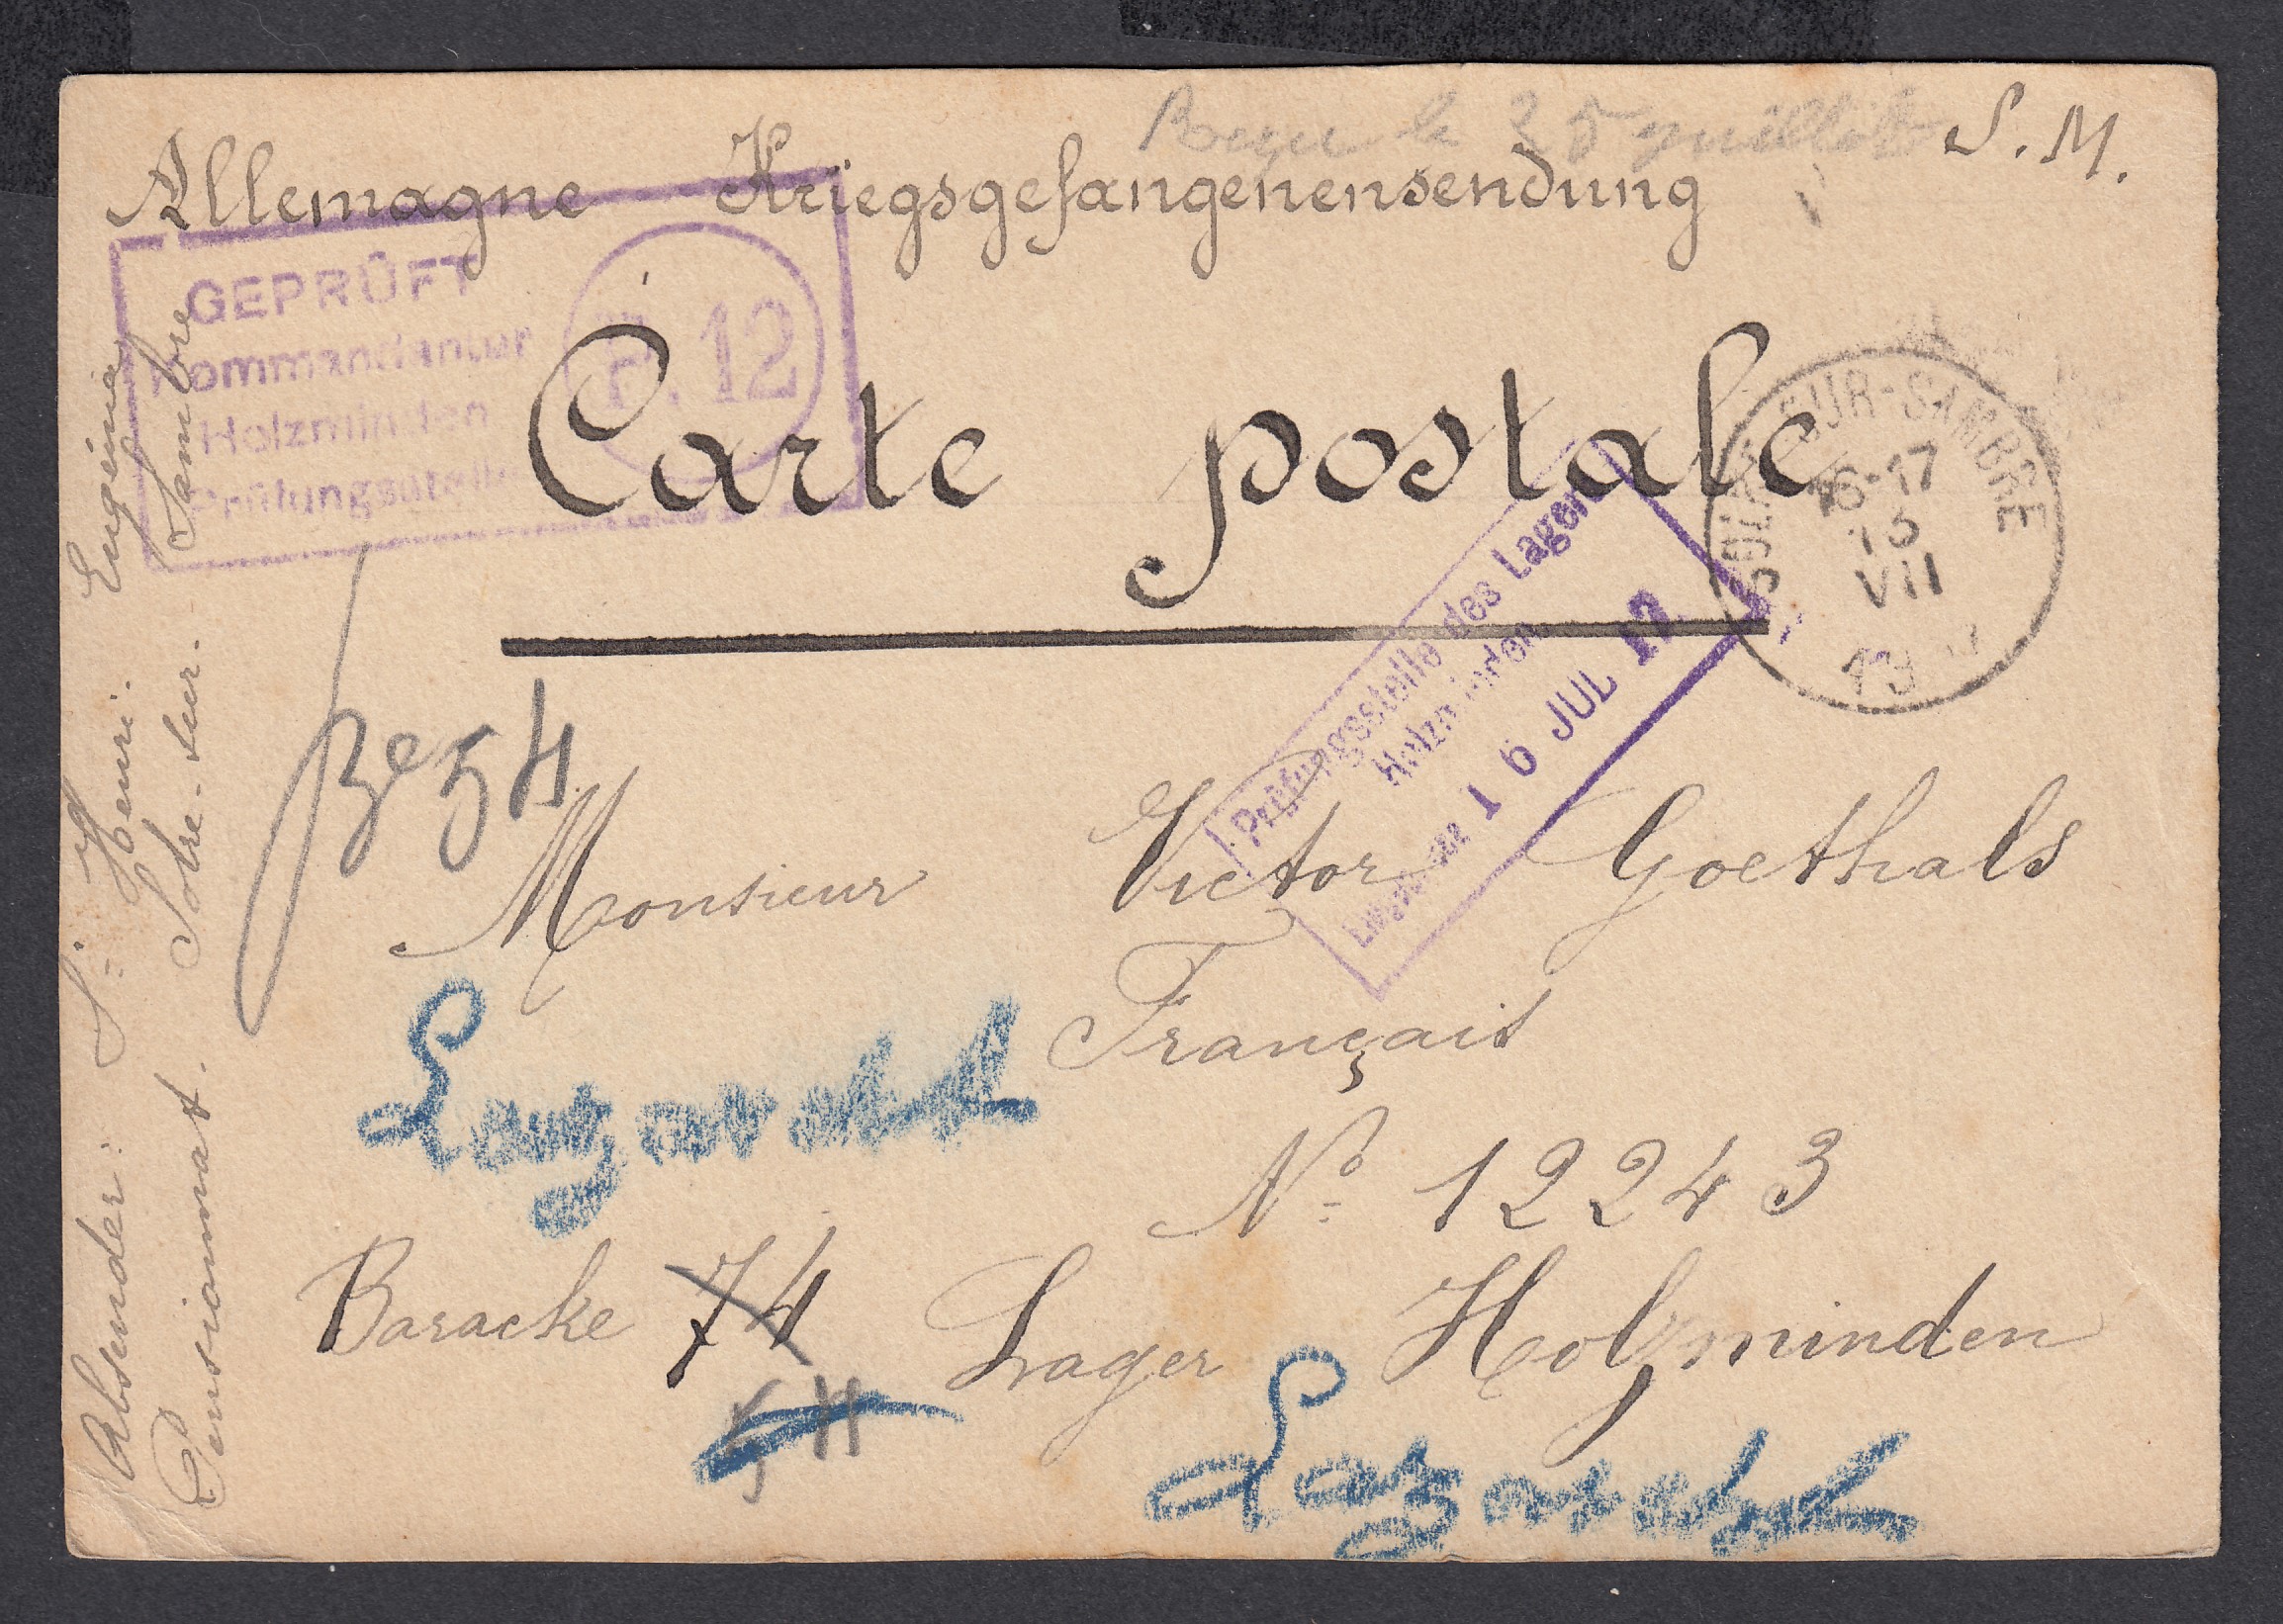 Reçu le 25 juillet
S. M.
Allemagne Kriegsgefangenensendung
GEPRÜFT
Kommandantur
Holzminden
Prüfungsstelle
P. 12
Carte postale
SOLRE-SUR-SAMBRE
16-17
15
VII
19
Prüfungsstelle des Lagers
Holzminden
16 JUL 17
Be 54
Monsieur Victor Goethals
Français
Lazarett
Nº 12243
Baracke 74 Lager Holzminden
54
Lazarett
Absender: St Henri. Eugénie
Pensionnat. Solre-sur-Sambre